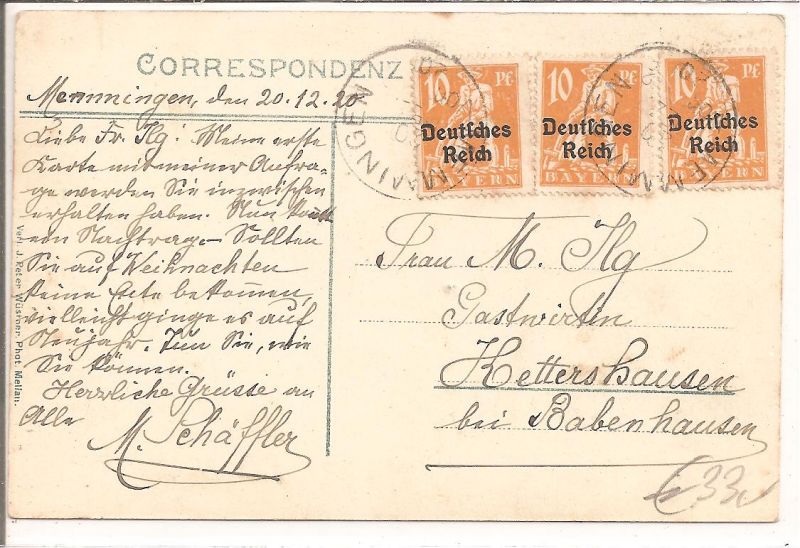 CORRESPONDENZ
Memmingen, den 20.12.20
Liebe Fr. Ilg! Meine erste
Karte mit meiner Anfra-
ge werden Sie inzwischen
erhalten haben. Nun
ein Nachtrag - Sollten
Sie auf Weihnachten
keine Ente bekommen,
vielleicht ginge es auf
Neujahr. Tun Sie, wie
Sie können.
Herzliche Grüsse an
Alle
M. Schäffler
Verl. J. Peter Wüstner, Phot. Mellau.
10 Pf.
Deutsches
Reich
BAYERN
10 Pf.
Deutsches
Reich
BAYERN
10 Pf.
Deutsches
Reich
BAYERN
MEMMINGEN
MEMMINGEN
Frau M. Ilg
Gastwirtin
Kettershausen
bei Babenhausen
33